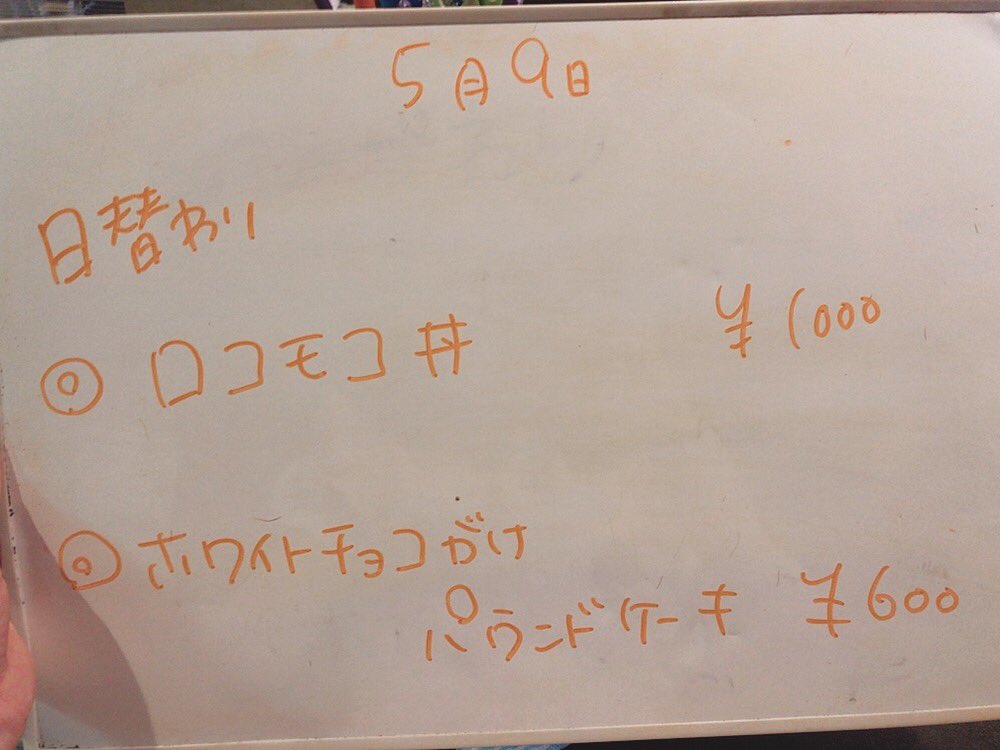 5月9日
日替わり
◎ロコモコ丼 ¥1000
◎ホワイトチョコがけ
パウンドケーキ ¥600